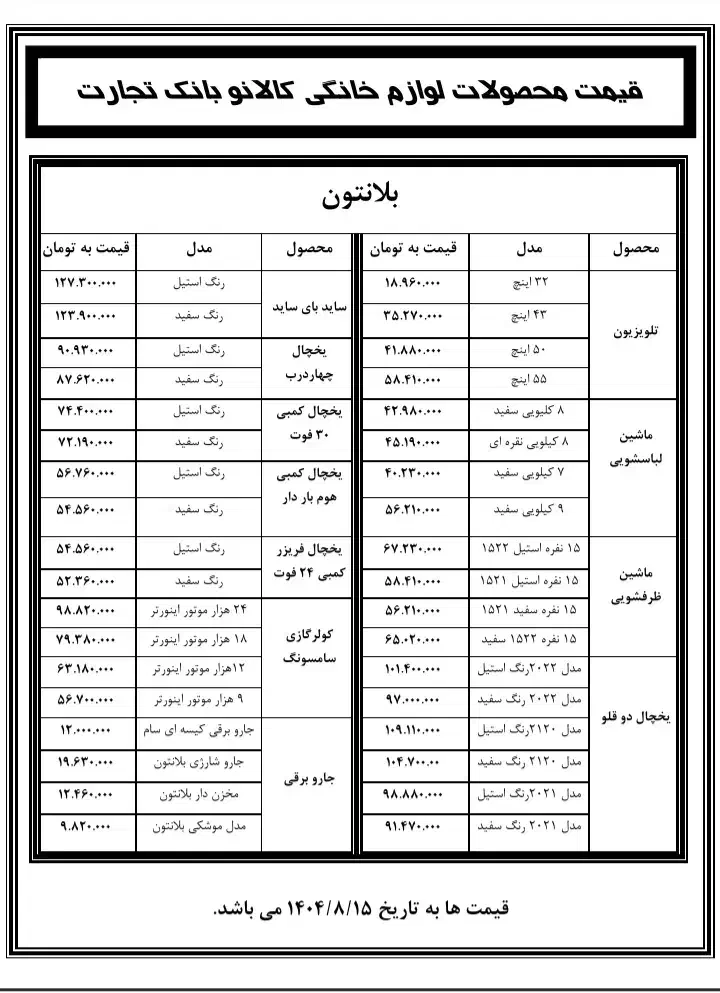 قیمت محصولات لوازم خانگی کالانو بانک تجارت
بلانتون
محصول مدل قیمت به تومان محصول مدل قیمت به تومان
تلویزیون ۳۲ اینچ ۱۸.۹۶۰.۰۰۰ ساید بای ساید رنگ استیل ۱۲۷.۳۰۰.۰۰۰
۴۳ اینچ ۳۵.۲۷۰.۰۰۰ رنگ سفید ۱۲۳.۹۰۰.۰۰۰
۵۰ اینچ ۴۱.۸۸۰.۰۰۰ یخچال چهاردرب رنگ استیل ۹۰.۹۳۰.۰۰۰
۵۵ اینچ ۵۸.۴۱۰.۰۰۰ رنگ سفید ۸۷.۶۲۰.۰۰۰
ماشین لباسشویی ۸ کلیویی سفید ۴۲.۹۸۰.۰۰۰ یخچال کمبی ۳۰ فوت رنگ استیل ۷۴.۴۰۰.۰۰۰
۸ کیلویی نقره ای ۴۵.۱۹۰.۰۰۰ رنگ سفید ۷۲.۱۹۰.۰۰۰
۷ کیلویی سفید ۴۰.۲۳۰.۰۰۰ یخچال کمبی هوم بار دار رنگ استیل ۵۶.۷۶۰.۰۰۰
۹ کیلویی سفید ۵۶.۲۱۰.۰۰۰ رنگ سفید ۵۴.۵۶۰.۰۰۰
ماشین ظرفشویی ۱۵ نفره استیل ۱۵۲۲ ۶۷.۲۳۰.۰۰۰ یخچال فریزر کمبی ۲۴ فوت رنگ استیل ۵۴.۵۶۰.۰۰۰
۱۵ نفره استیل ۱۵۲۱ ۵۸.۴۱۰.۰۰۰ رنگ سفید ۵۲.۳۶۰.۰۰۰
۱۵ نفره سفید ۱۵۲۱ ۵۶.۲۱۰.۰۰۰ کولرگازی سامسونگ ۲۴ هزار موتور اینورتر ۹۸.۸۲۰.۰۰۰
۱۵ نفره ۱۵۲۲ سفید ۶۵.۰۲۰.۰۰۰ ۱۸ هزار موتور اینورتر ۷۹.۳۸۰.۰۰۰
یخچال دو قلو مدل ۲۰۲۲رنگ استیل ۱۰۱.۴۰۰.۰۰۰ ۱۲هزار موتور اینورتر ۶۳.۱۸۰.۰۰۰
مدل ۲۰۲۲ رنگ سفید ۹۷.۰۰۰.۰۰۰ ۹ هزار موتور اینورتر ۵۶.۷۰۰.۰۰۰
مدل ۲۱۲۰رنگ استیل ۱۰۹.۱۱۰.۰۰۰ جارو برقی جارو برقی کیسه ای سام ۱۲.۰۰۰.۰۰۰
مدل ۲۱۲۰ رنگ سفید ۱۰۴.۷۰۰.۰۰ جارو شارژی بلانتون ۱۹.۶۳۰.۰۰۰
مدل ۲۰۲۱رنگ استیل ۹۸.۸۸۰.۰۰۰ مخزن دار بلانتون ۱۲.۴۶۰.۰۰۰
مدل ۲۰۲۱ رنگ سفید ۹۱.۴۷۰.۰۰۰ مدل موشکی بلانتون ۹.۸۲۰.۰۰۰
قیمت ها به تاریخ ۱۴۰۴/۸/۱۵ می باشد.